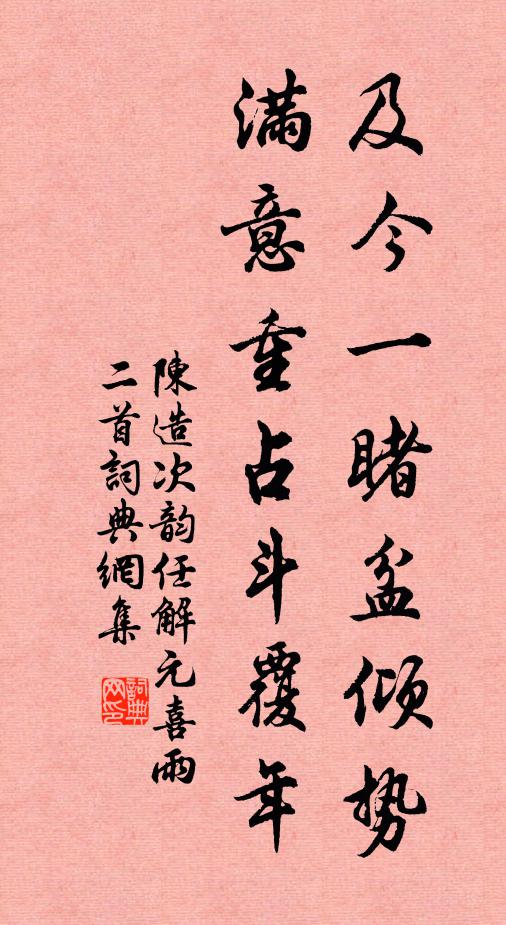 及今一睹盆倾势
满意重占斗覆年
陳造次韵任解元喜雨
二首詞典網集
詞典
网印